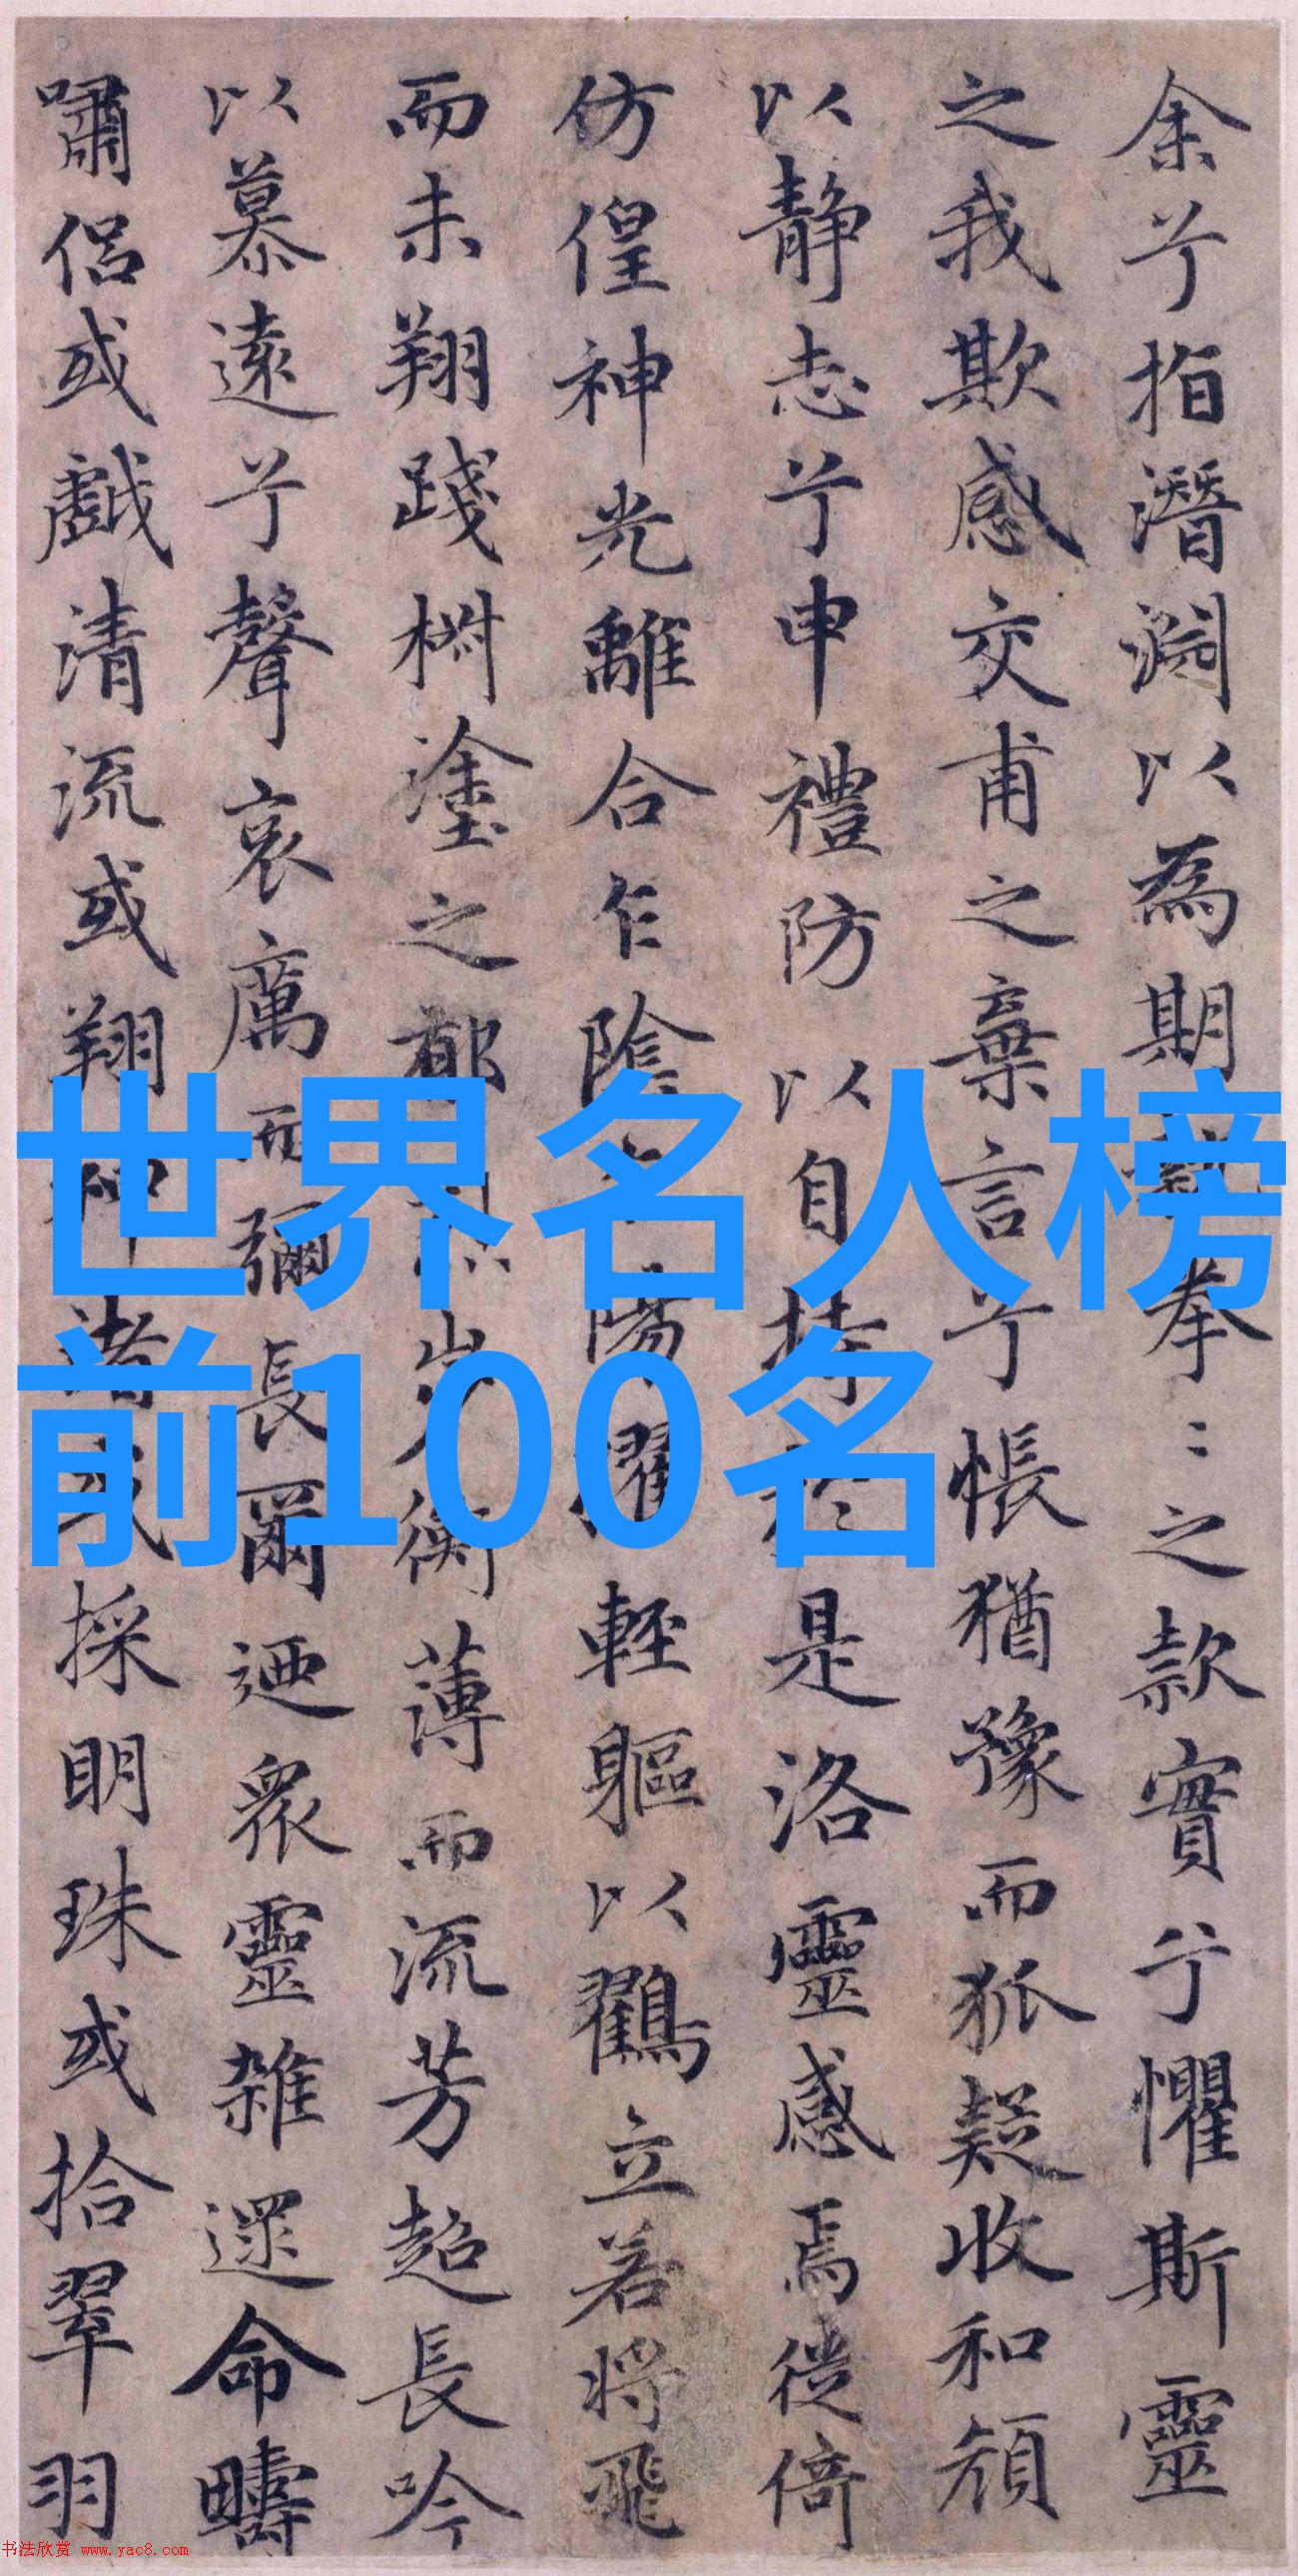 余兮指潛淵以為期執拳〻之款實兮懼斯靈
之我欺感交甫之棄言兮悵猶豫而狐疑收和顏
以靜志兮申禮防以自持於是洛靈感焉徙倚
仿偟神光離合乍陰乍陽擢輕軀以鶴立若將飛
而未翔踐椒塗之郁烈步衡薄而流芳超長吟
以慕遠兮聲哀厲而彌長爾迺衆靈雜遝命疇
嘯侶或戲清流或翔神渚或採明珠或拾翠羽
世界名人榜
前100名
书法欣赏 www.yac8.com